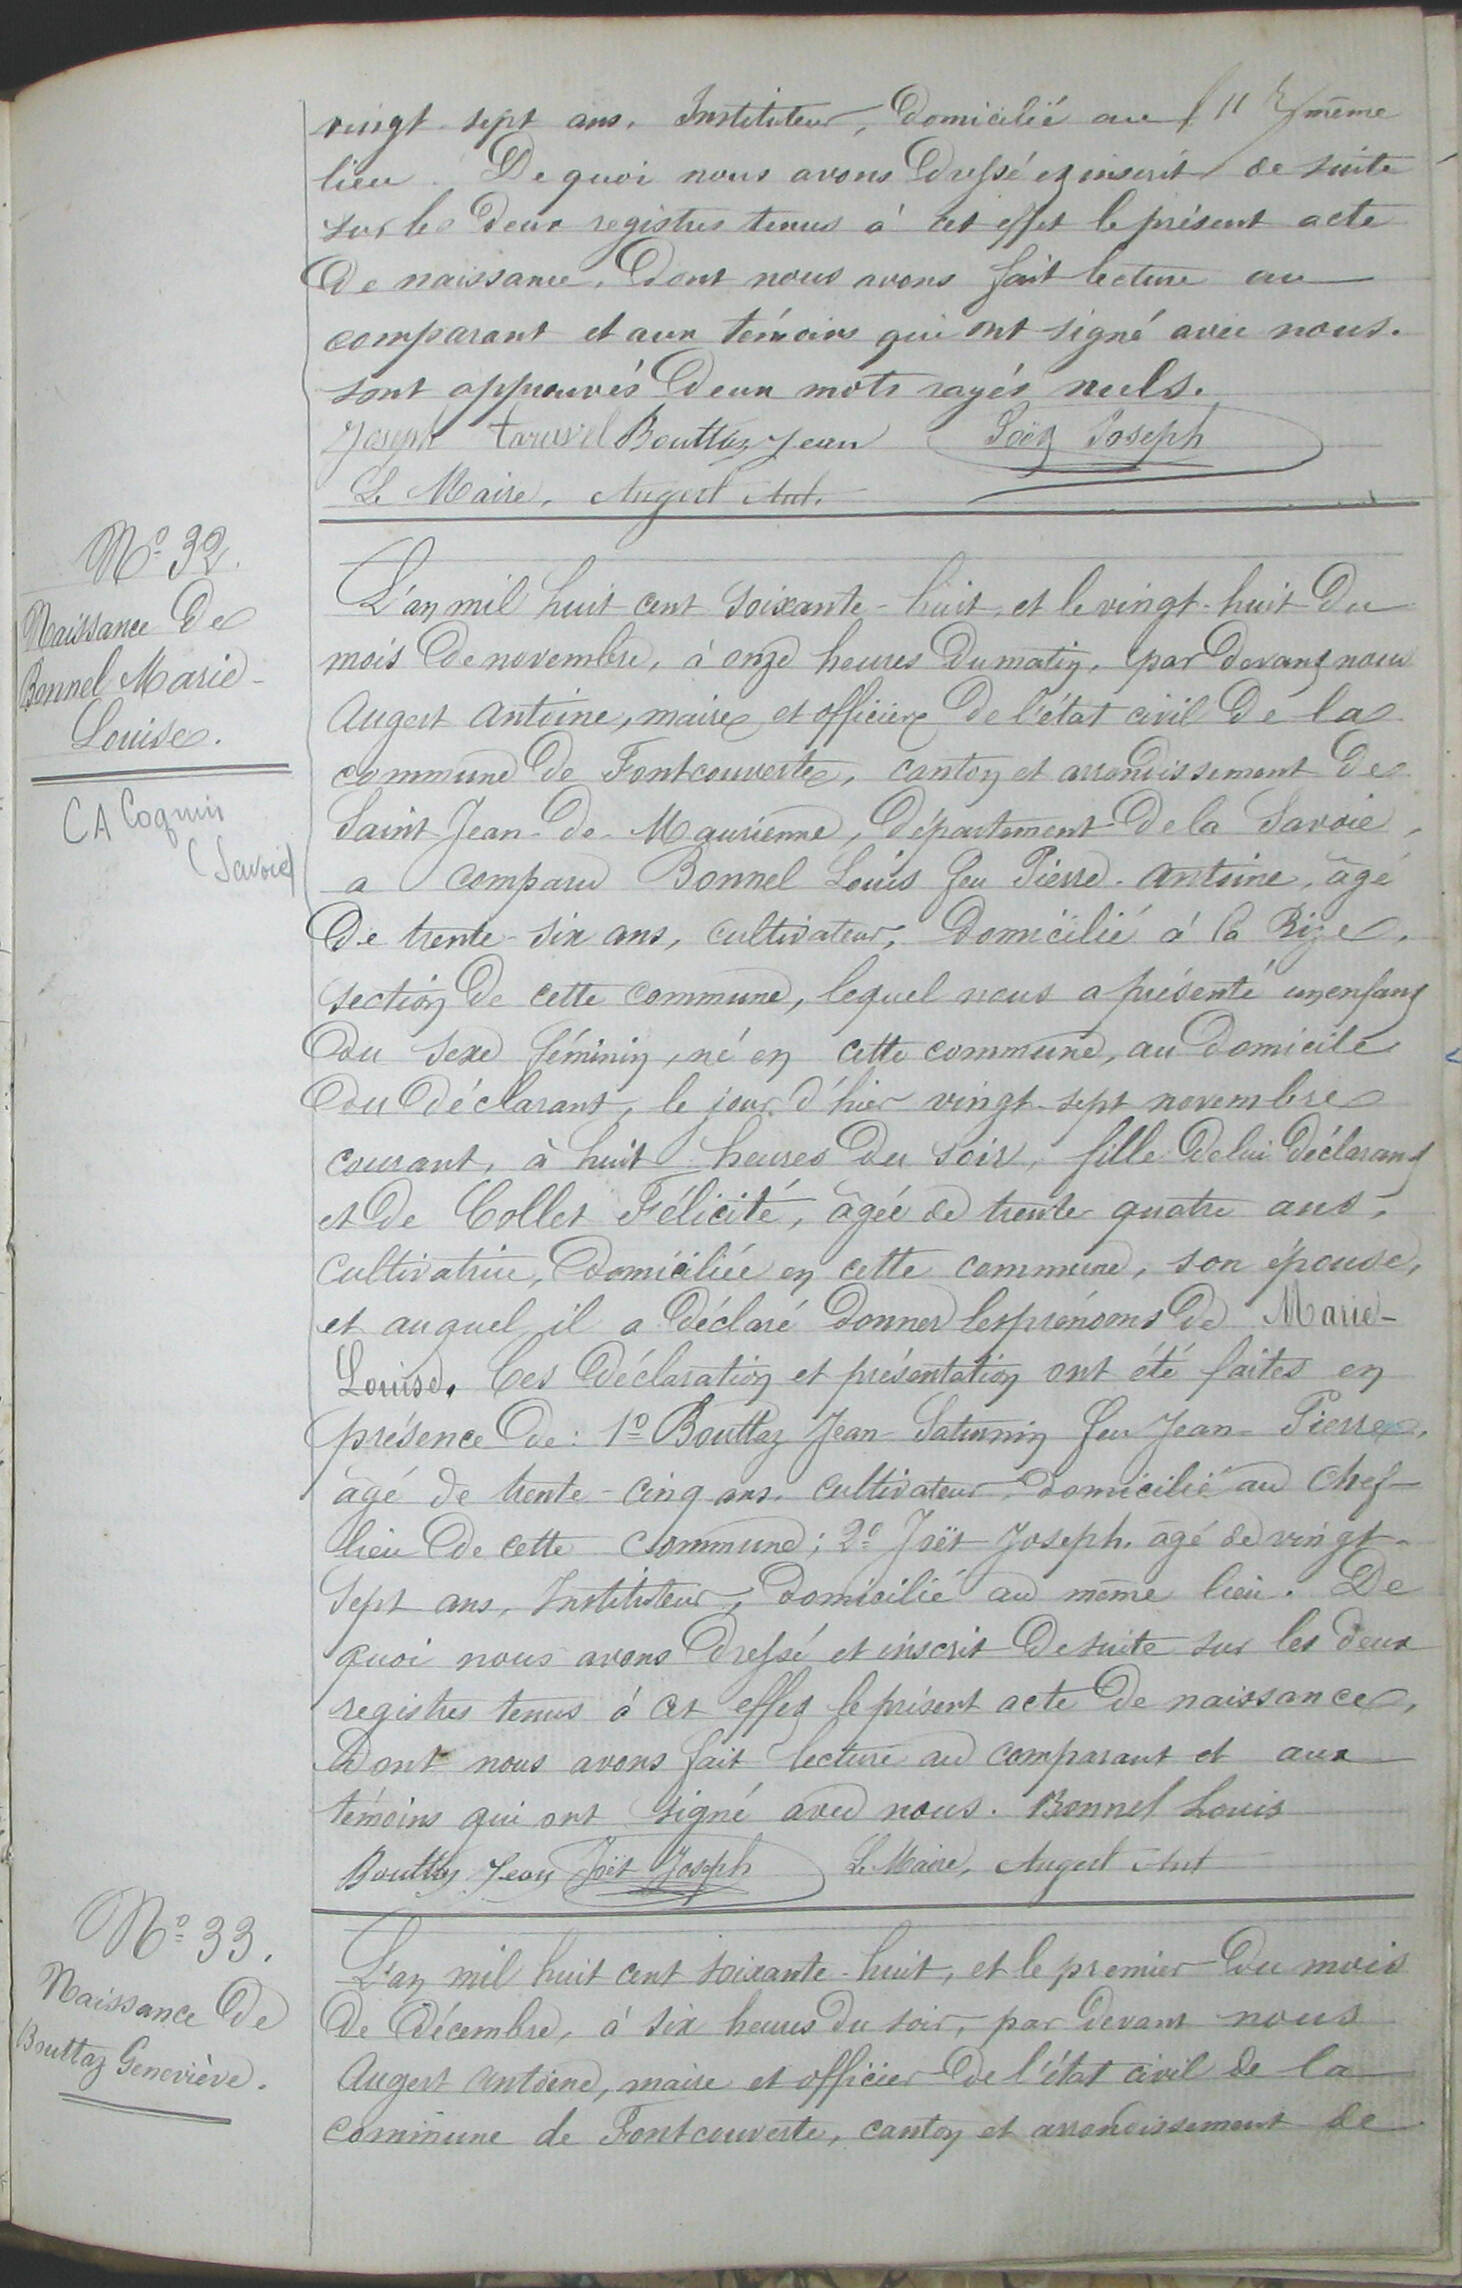 vingt-sept ans, Instituteur, domicilié au même
lieu. De quoi nous avons dressé et inscrit de suite
sur les deux registres tenus à cet effet le présent acte
de naissance, dont nous avons fait lecture au
comparant et aux témoins qui ont signé avec nous.
sont approuvés deux mots rayés nuls.
Joseph Bouttaz Jean Joët Joseph
Le Maire, Augert Ant.
N.º 32.
Naissance de
Bonnel Marie-
Louise.
CA
(Savoie)
L'an mil huit cent soixante-huit, et le vingt-huit du
mois de novembre, à onze heures du matin, par devant nous
Augert Antoine, maire et officier de l'état civil de la
commune de Fontcouverte, canton et arrondissement de
Saint-Jean-de-Maurienne, département de la Savoie,
a comparu Bonnel Louis feu Pierre-Antoine, âgé
de trente-six ans, cultivateur, domicilié à la
section de cette commune, lequel nous a présenté un enfant
du sexe féminin, né en cette commune, au domicile
du déclarant, le jour d'hier vingt-sept novembre
courant, à huit heures du soir, fille de lui déclarant
et de Collet Félicité, âgée de trente-quatre ans,
cultivatrice, domiciliée en cette commune, son épouse,
et auquel il a déclaré donner les prénoms de Marie-
Louise. Ces déclaration et présentation ont été faites en
présence de: 1º Bouttaz Jean-Saturnin feu Jean-Pierre,
âgé de trente-cinq ans, cultivateur, domicilié au chef-
lieu de cette commune; 2º Joët Joseph, âgé de vingt-
sept ans, Instituteur, domicilié au même lieu. De
quoi nous avons dressé et inscrit de suite sur les deux
registres tenus à cet effet le présent acte de naissance,
dont nous avons fait lecture au comparant et aux
témoins qui ont signé avec nous. Bonnel Louis
Bouttaz Jean Joët Joseph Le Maire, Augert Ant
N.º 33.
Naissance de
Bouttaz Geneviève.
L'an mil huit cent soixante-huit, et le premier du mois
de décembre, à six heures du soir, par devant nous
Augert Antoine, maire et officier de l'état civil de la
commune de Fontcouverte, canton et arrondissement de